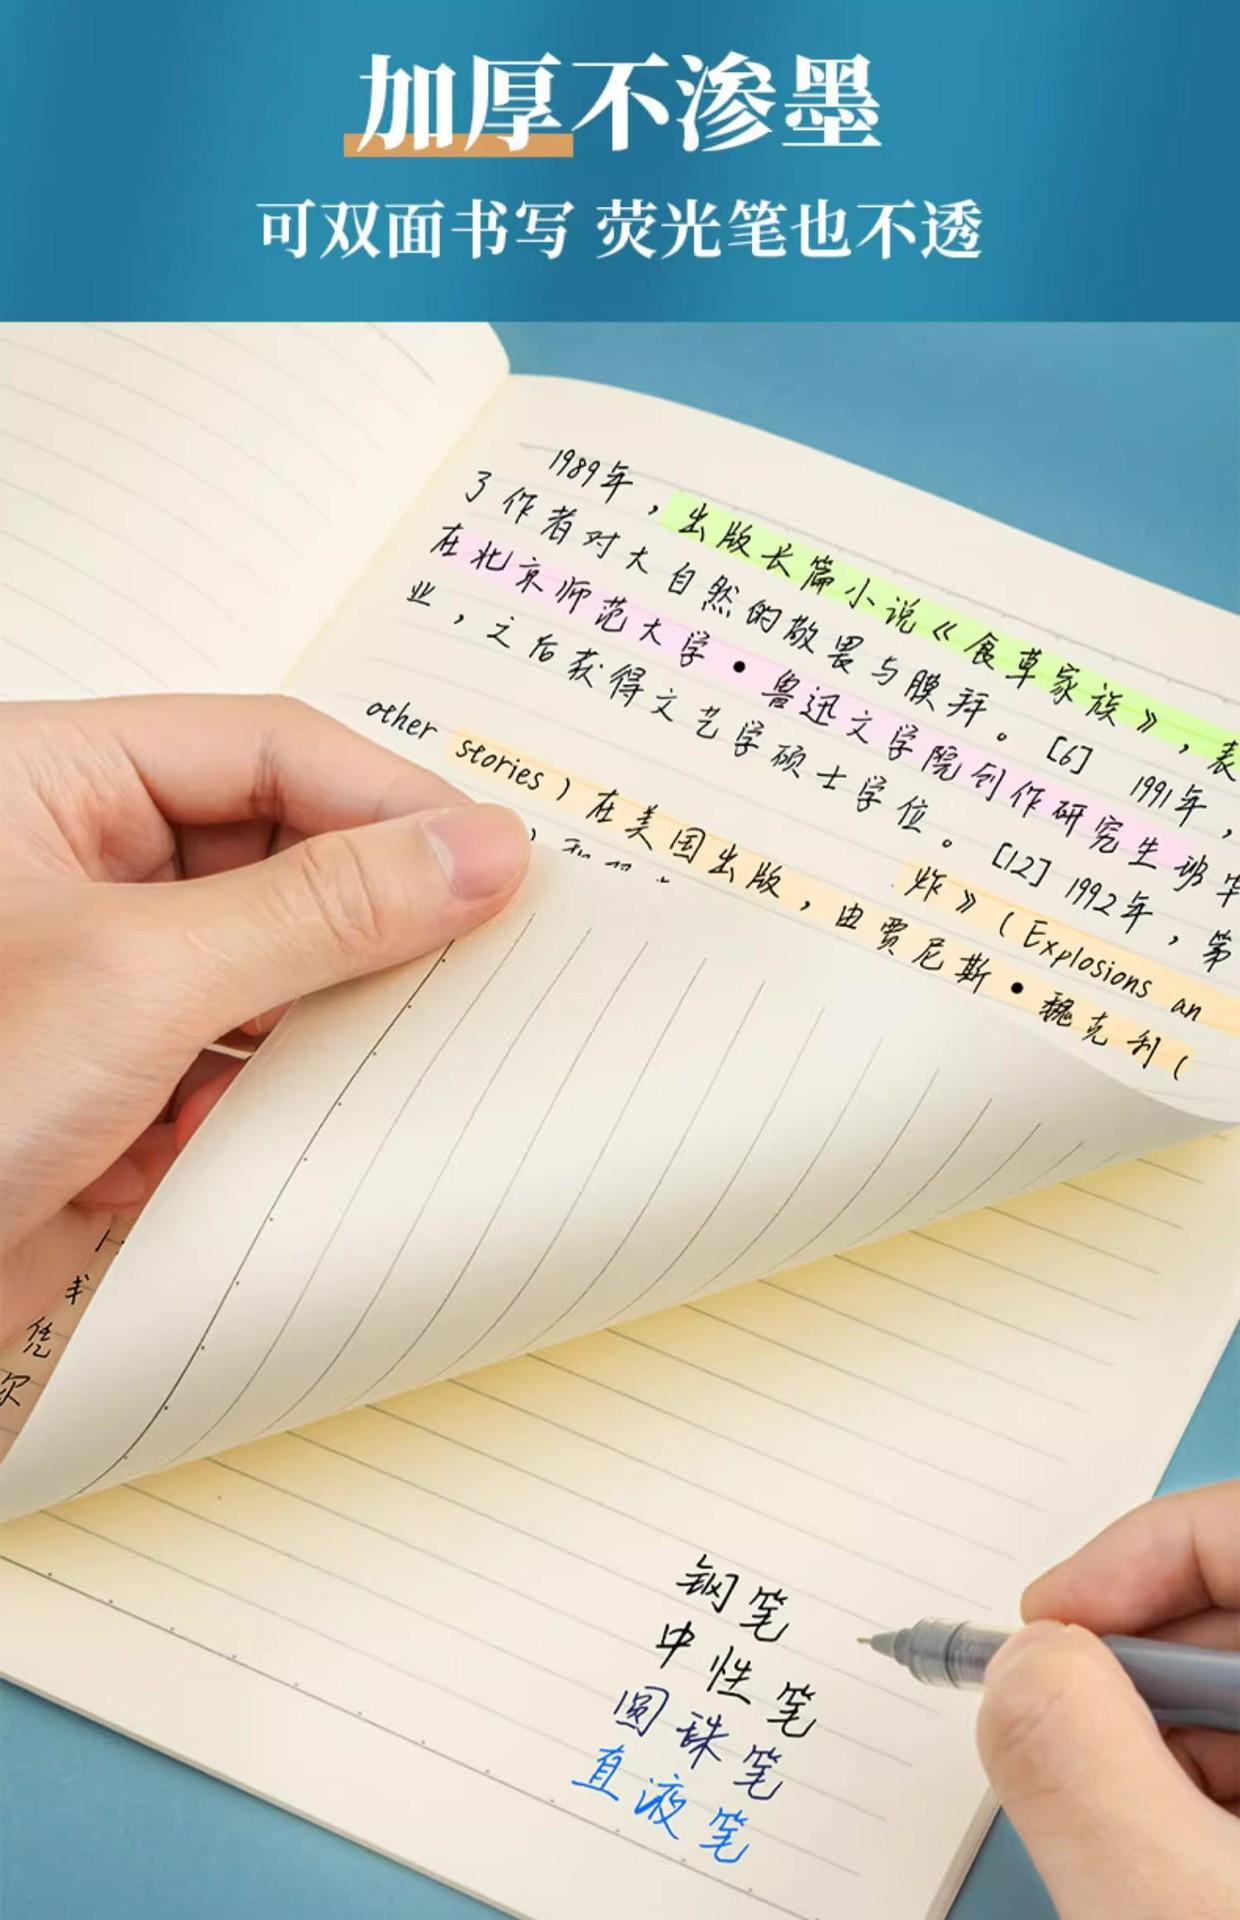 加厚不渗墨
可双面书写 荧光笔也不透
1989年，出版长篇小说《食草家族》，表
了作者对大自然的敬畏与膜拜。[6] 1991年，
在北京师范大学·鲁迅文学院创作研究生班毕
业，之后获得文艺学硕士学位。[12] 1992年，第
炸》（Explosions an
other stories）在美国出版，由贾尼斯·魏克利（
凭
钢笔
中性笔
圆珠笔
直液笔